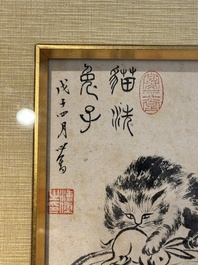 貓洗
兔子
戊子四月